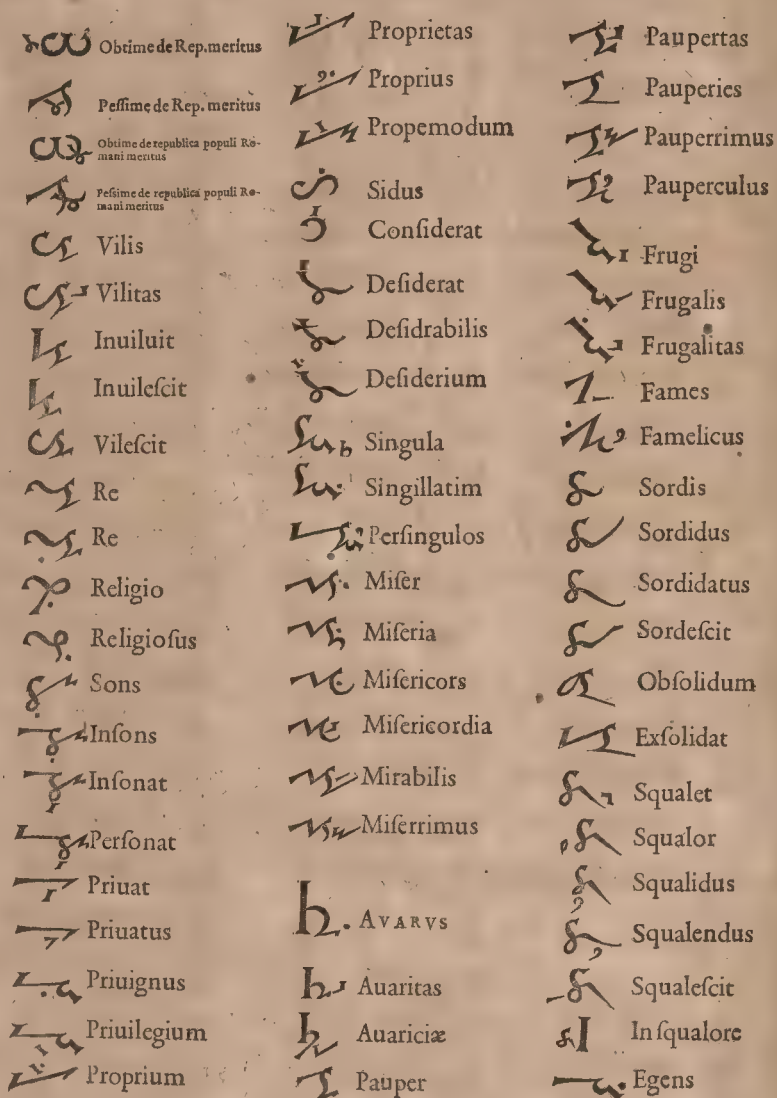 Obtime de Rep. meritus
Peſſime de Rep. meritus
Obtime de republica populi Ro-
mani meritus
Peſsime de republica populi Ro-
mani meritus
Vilis
Vilitas
Inuiluit
Inuileſcit
Vileſcit
Re
Re
Religio
Religioſus
Sons
Inſons
Inſonat
Perſonat
Priuat
Priuatus
Priuignus
Priuilegium
Proprium
Proprietas
Proprius
Propemodum
Sidus
Conſiderat
Deſiderat
Deſidrabilis
Deſiderium
Singula
Singillatim
Perſingulos
Miſer
Miſeria
Miſericors
Miſericordia
Mirabilis
Miſerrimus
AVARVS
Auaritas
Auariciæ
Pauper
Paupertas
Pauperies
Pauperrimus
Pauperculus
Frugi
Frugalis
Frugalitas
Fames
Famelicus
Sordis
Sordidus
Sordidatus
Sordeſcit
Obſolidum
Exſolidat
Squalet
Squalor
Squalidus
Squalendus
Squaleſcit
In ſqualore
Egens